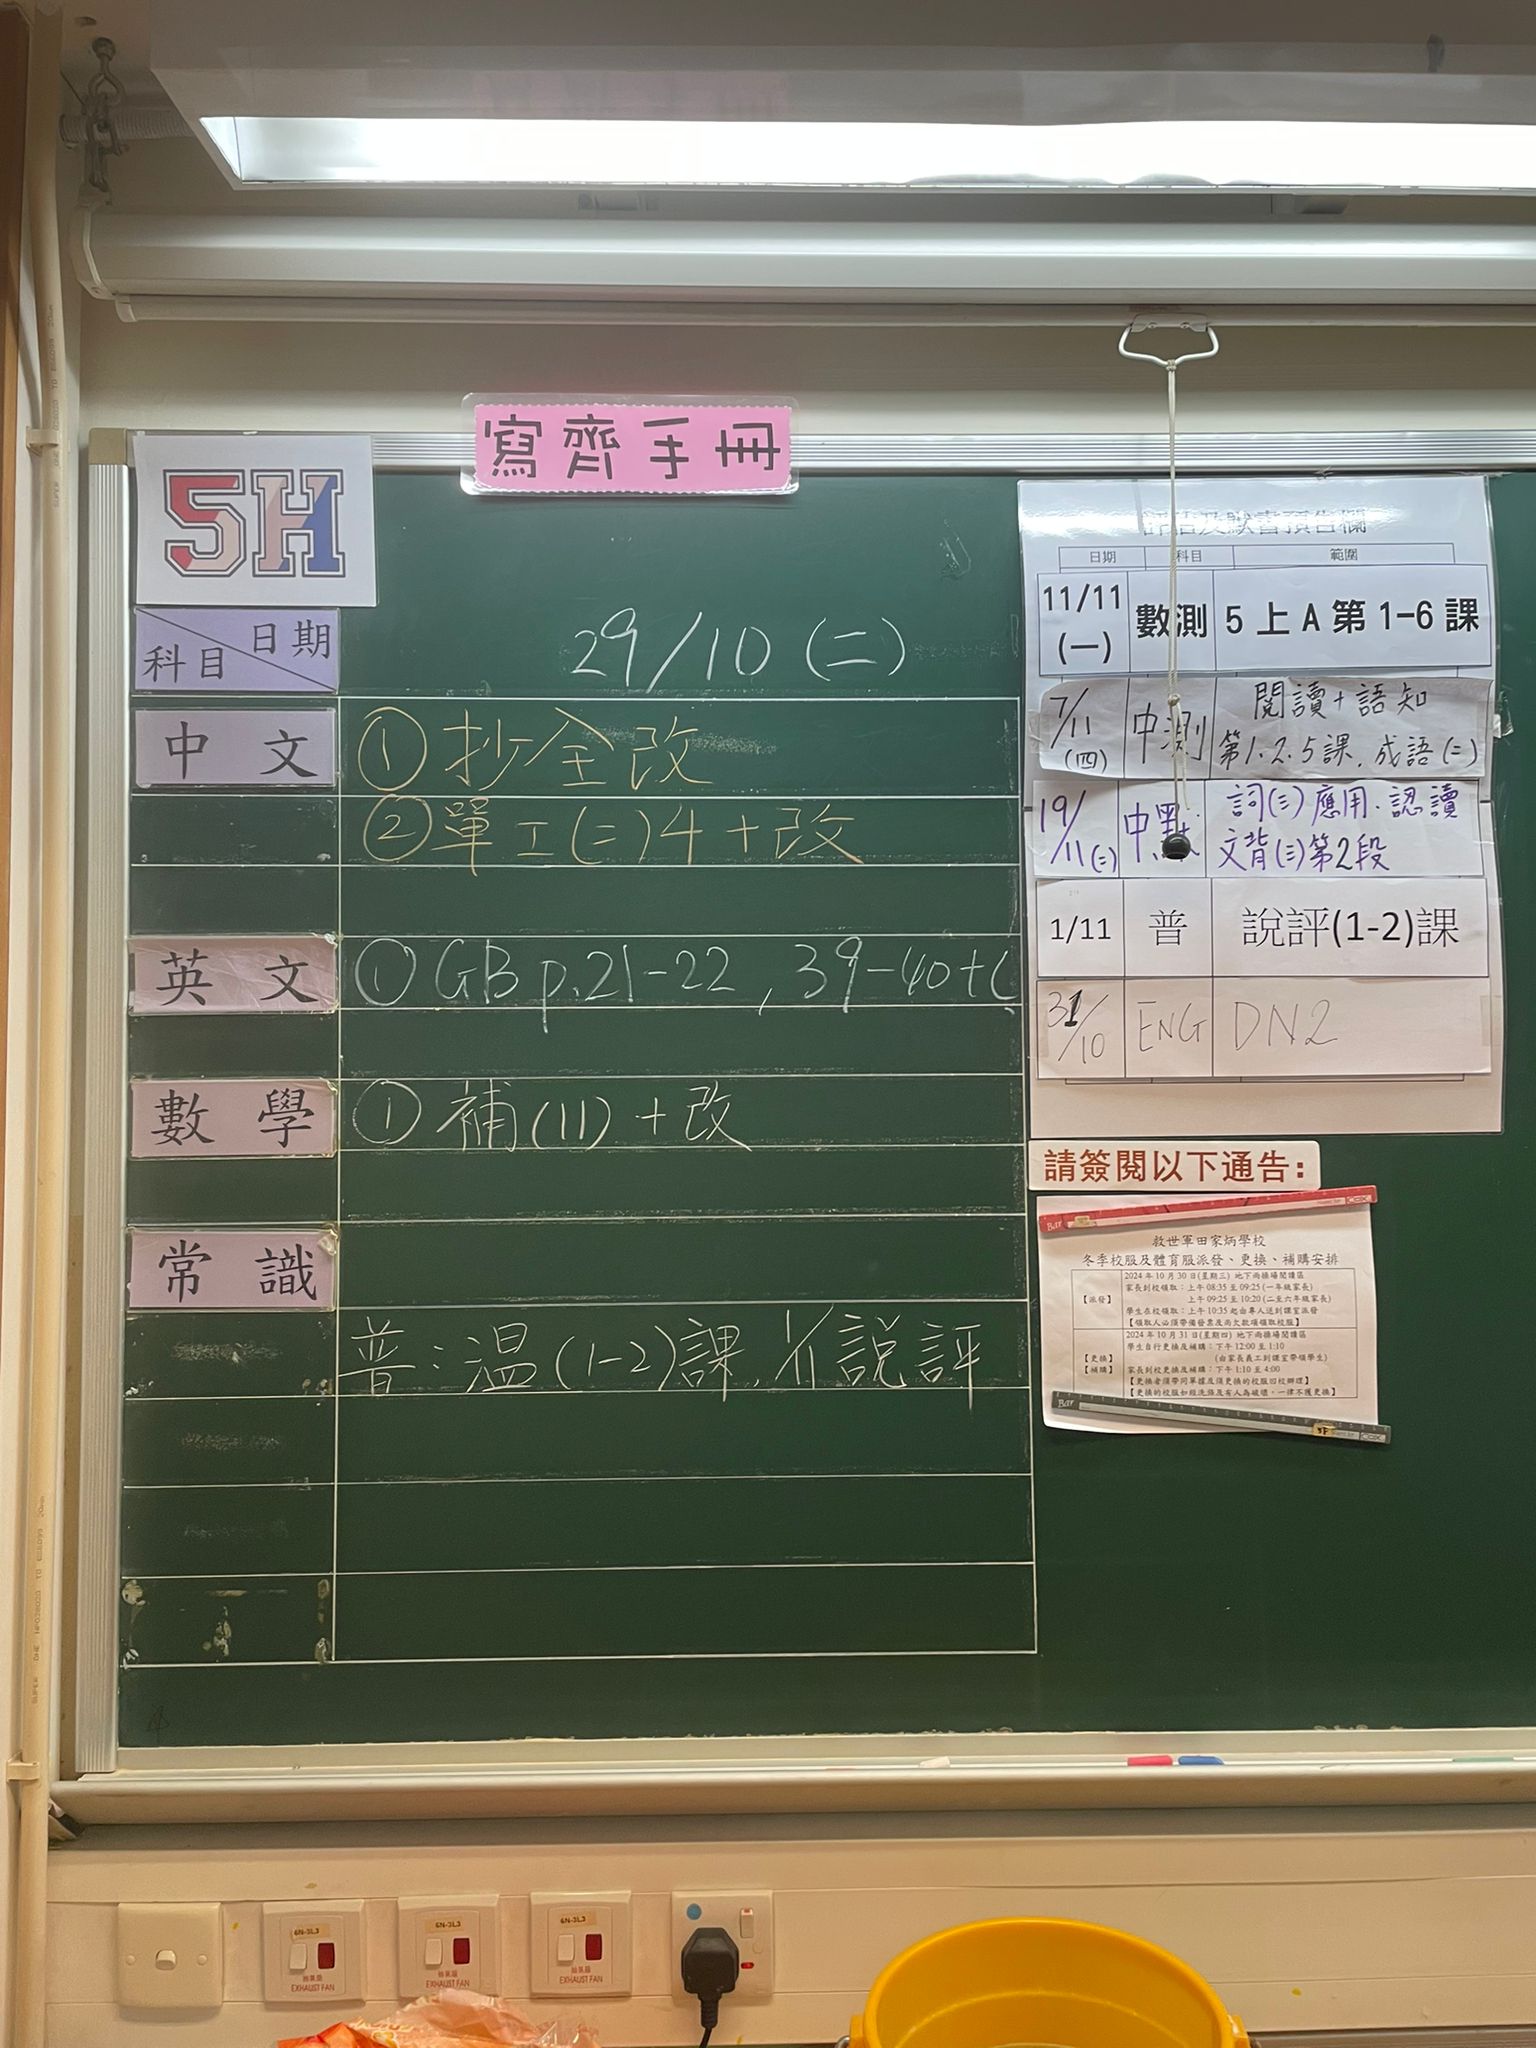 寫齊手冊
5H
日期
科目
29/10 (二)
中文
①抄全改
②單工(二)4+改
英文
①GB p.21-22, 39-40+C
數學
①補(11)+改
常識
普:温(1-2)課, 1/11說評
評估及默書預告欄
日期 科目 範圍
11/11 (一) 數測 5上A第1-6課
7/11 (四) 中測 閱讀+語知
第1.2.5課.成語(二)
19/11(二) 中默 詞(三)應用.認讀
文背(三)第2段
1/11 普 說評(1-2)課
31/10 ENG DN2
請簽閱以下通告:
救世軍田家炳學校
冬季校服及體育服派發、更換、補購安排
【派發】
2024年10月30日(星期三) 地下雨操場閱讀區
家長到校領取:上午08:35至09:25(一年級家長)
上午09:25至10:20(二至六年級家長)
學生在校領取:上午10:35起由專人送到課室派發
【領取人必須帶備發票及尚欠款項領取校服】
【更換】
【補購】
2024年10月31日(星期四) 地下雨操場閱讀區
學生自行更換及補購:下午12:00至1:10
(由家長義工到課室帶領學生)
家長到校更換及補購:下午1:10至4:00
【更換者須帶同單據及須更換的校服回校辦理】
【更換的校服如經洗滌及有人為破壞,一律不獲更換】
6N-3L3
抽氣扇
EXHAUST FAN
6N-3L3
抽氣扇
EXHAUST FAN
6N-3L3
抽氣扇
EXHAUST FAN